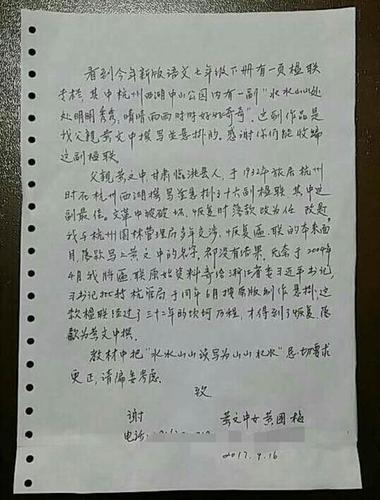 看到今年新版语文七年级下册有一页楹联
专栏,其中杭州西湖中山公园内有一副"水水山山处
处明明秀秀,晴晴雨雨时时好好奇奇"。这副作品是
我父亲黄文中撰写并悬挂的,感谢你们能收编
这副楹联。
父亲黄文中甘肃临洮县人,于1932年旅居杭州
时在杭州西湖撰写并悬挂了十六副楹联,其中这
副最佳。文革中被破坏,恢复时落款改为任政
我与杭州园林管理局多年交涉,恢复匾联的本来面
目,落款写上黄文中的名字,都没有结果。无奈于2004年
4月我将匾联原始资料寄给浙江省委习近平书记,
习书记批转杭管局于同年6月按原版制作悬挂,这
款楹联经过了三十二年的坎坷历程,才得到了恢复,落
款为黄文中撰。
教材中把"水水山山误写为山山水水"恳切要求
更正,请编委考虑。
致
谢 黄文中女黄国梅
电话:
2017.9.16